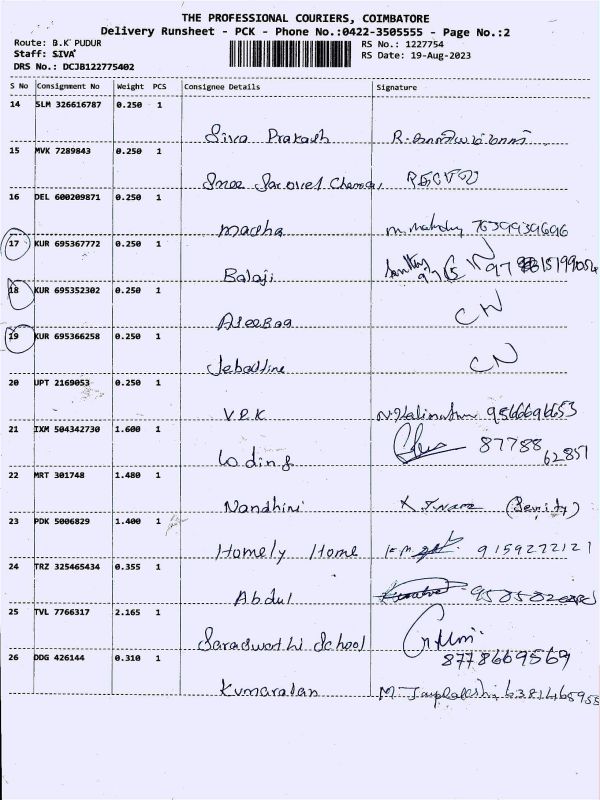 THE PROFESSIONAL COURIERS, COIMBATORE
Delivery Runsheet - PCK - Phone No.:0422-3505555 - Page No.:2
Route: B.K PUDUR
RS No.: 1227754
Staff: SIVA
RS Date: 19-Aug-2023
DRS No.: DCJB122775402
S No Consignment No Weight PCS Consignee Details Signature
14 SLM 326616787 0.250 1
Siva Prakash R.
15 MVK 7289843 0.250 1
Shree
16 DEL 600209871 0.250 1
Madha 7639939696
17 KUR 695367772 0.250 1
Balaji
18 KUR 695352302 0.250 1
CN
19 KUR 695366258 0.250 1
CN
20 UPT 2169053 0.250 1
V.R.K 9566696653
21 IXM 504342730 1.600 1
87788
Loding 62857
22 MRT 301748 1.480 1
Nandhini
23 PDK 5006829 1.400 1
Homely Home 9159272121
24 TRZ 325465434 0.355 1
Abdul
25 TVL 7766317 2.165 1
Saraswathi School
8778669569
26 DDG 426144 0.310 1
Kumaralan M. 6381465955